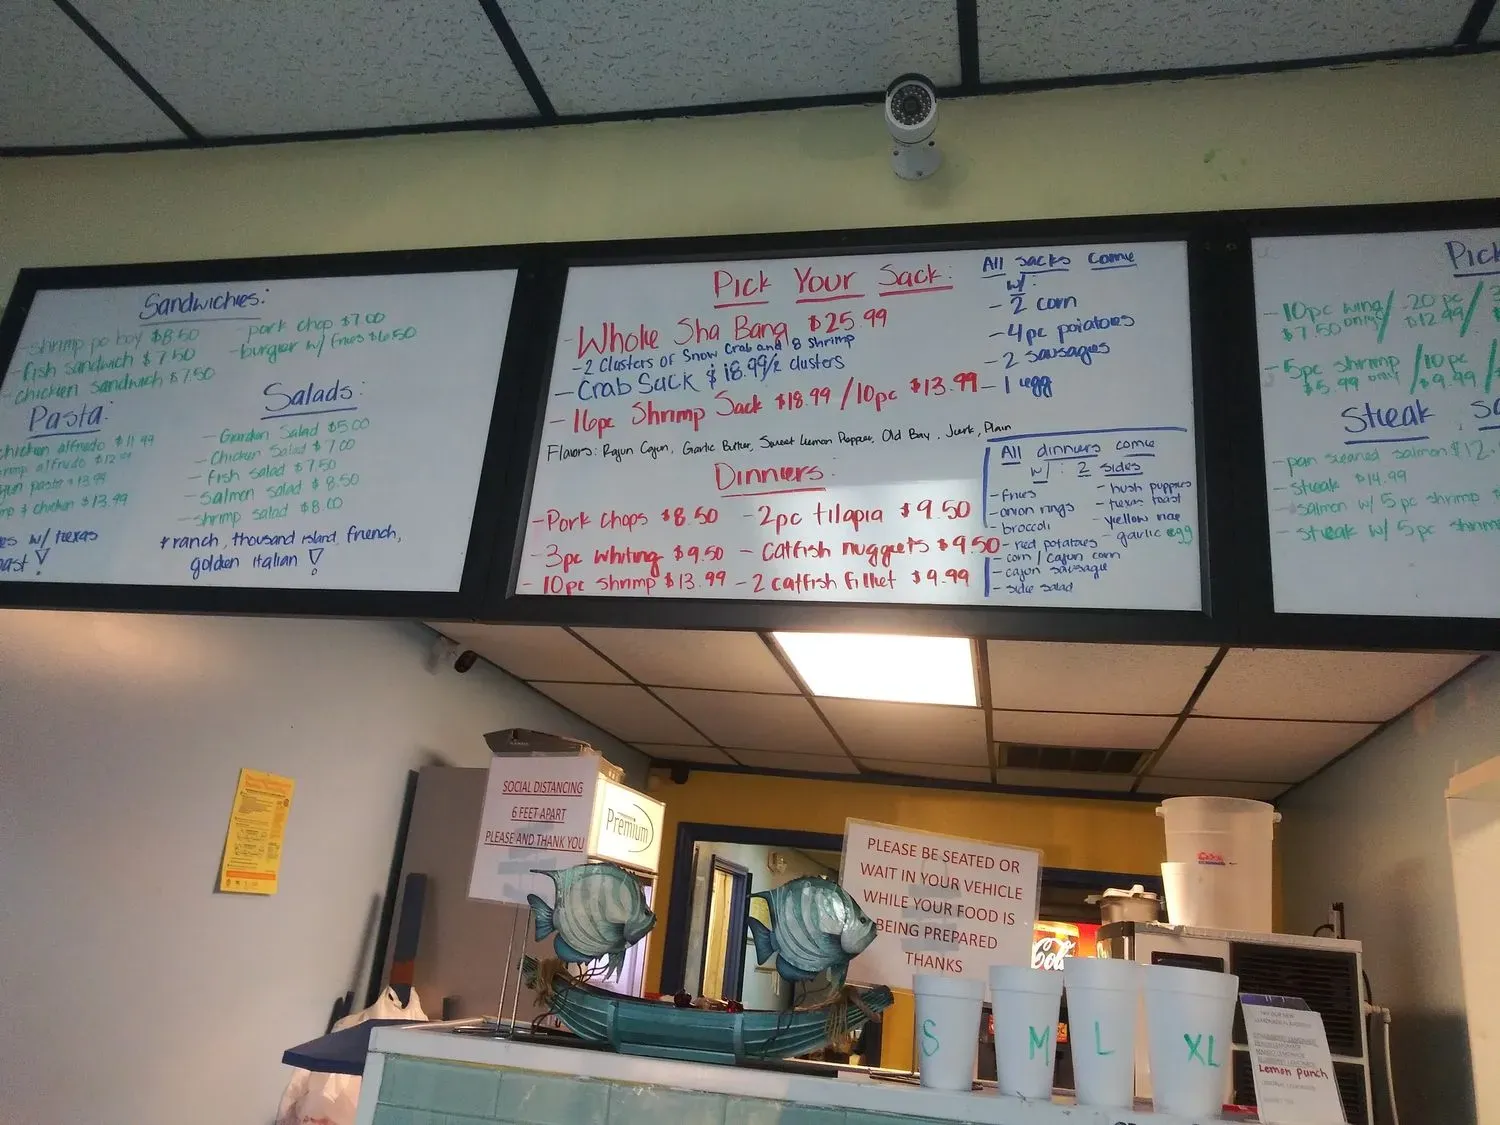 Sandwiches:
shrimp po boy $8.50
fish sandwich $7.50
chicken sandwich $7.50
pork chop $7.00
-burger w/ fries $6.50
Pasta:
chicken alfredo $11.99
alfredo
pasta $13.99
& chicken $13.99
w/ texas
Salads:
- Garden Salad $5.00
- Chicken Salad $7.00
- fish salad $7.50
- Salmon salad $8.50
- shrimp salad $8.00
* ranch, thousand island, french,
golden italian !
Pick Your Sack:
- Whole Sha Bang $25.99
- 2 Clusters of Snow Crab and 8 Shrimp
- Crab Sack $18.99/2 clusters
- 16pc Shrimp Sack $18.99 / 10pc $13.99
Flavors: Ragun Cajun, Garlic Butter, Sweet Lemon Pepper, Old Bay, Jerk, Plain
All sacks come
w/:
- 2 corn
- 4pc potatoes
- 2 sausages
- 1 egg
Dinners:
- Pork Chops $8.50
- 3pc whiting $9.50
- 10pc shrimp $13.99
- 2pc tilapia $9.50
- Catfish nuggets $9.50
- 2 catfish fillet $9.99
All dinners come
w/: 2 sides
- fries
- onion rings
- broccoli
- red potatoes
- corn / cajun corn
- cajun sausage
- side salad
- hush puppies
- texas toast
- yellow rice
- garlic egg
Pick
- 10pc wing/ 20 pc /
$7.50 only / $12.99 /
- 5pc shrimp / 10pc
$5.99 only / $9.99 /
Steak,
- pan seared salmon $12.
- steak $14.99
- salmon w/ 5 pc shrimp
- steak w/ 5pc shrimp
SOCIAL DISTANCING
6 FEET APART
PLEASE AND THANK YOU
Premium
PLEASE BE SEATED OR
WAIT IN YOUR VEHICLE
WHILE YOUR FOOD IS
BEING PREPARED
THANKS
S
M
L
XL
Lemon Punch